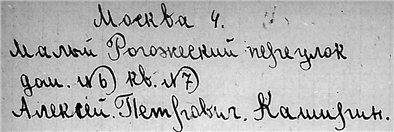 Москва 4.
Малый Рогожеский переулок
дом. №6) кв. №7)
Алексей. Петрович. Каширин.